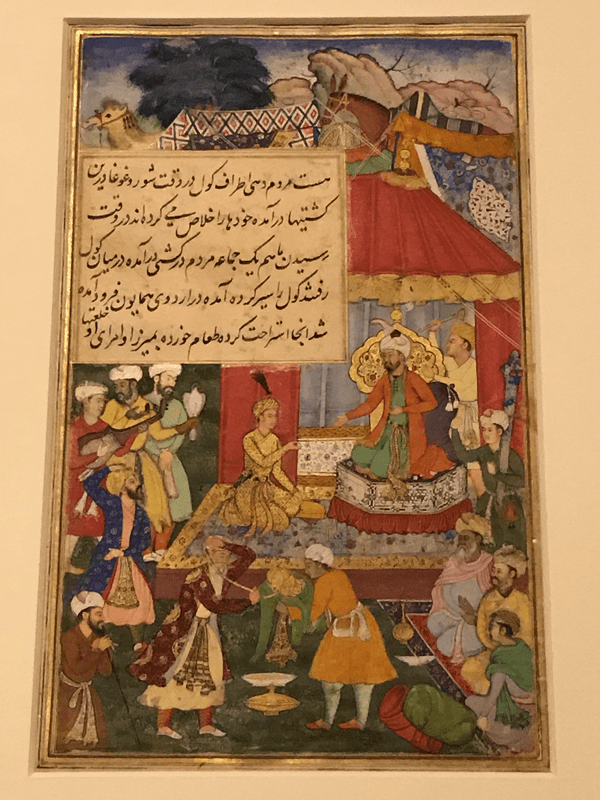 هست مردم دهی اطراف کول در وقت شور و غوغا درین
کشتیها درآمده خودها را خلاص می کرده اند در وقت
رسیدن ما هم یک جماعه مردم در کشتی درآمده در میان کول
رفتند کول را سیر کرده آمده در اردوی همایون فرود آمده
شد انجا استراحت کرده طعام خورده بمیرزا و امرای او خلعتها